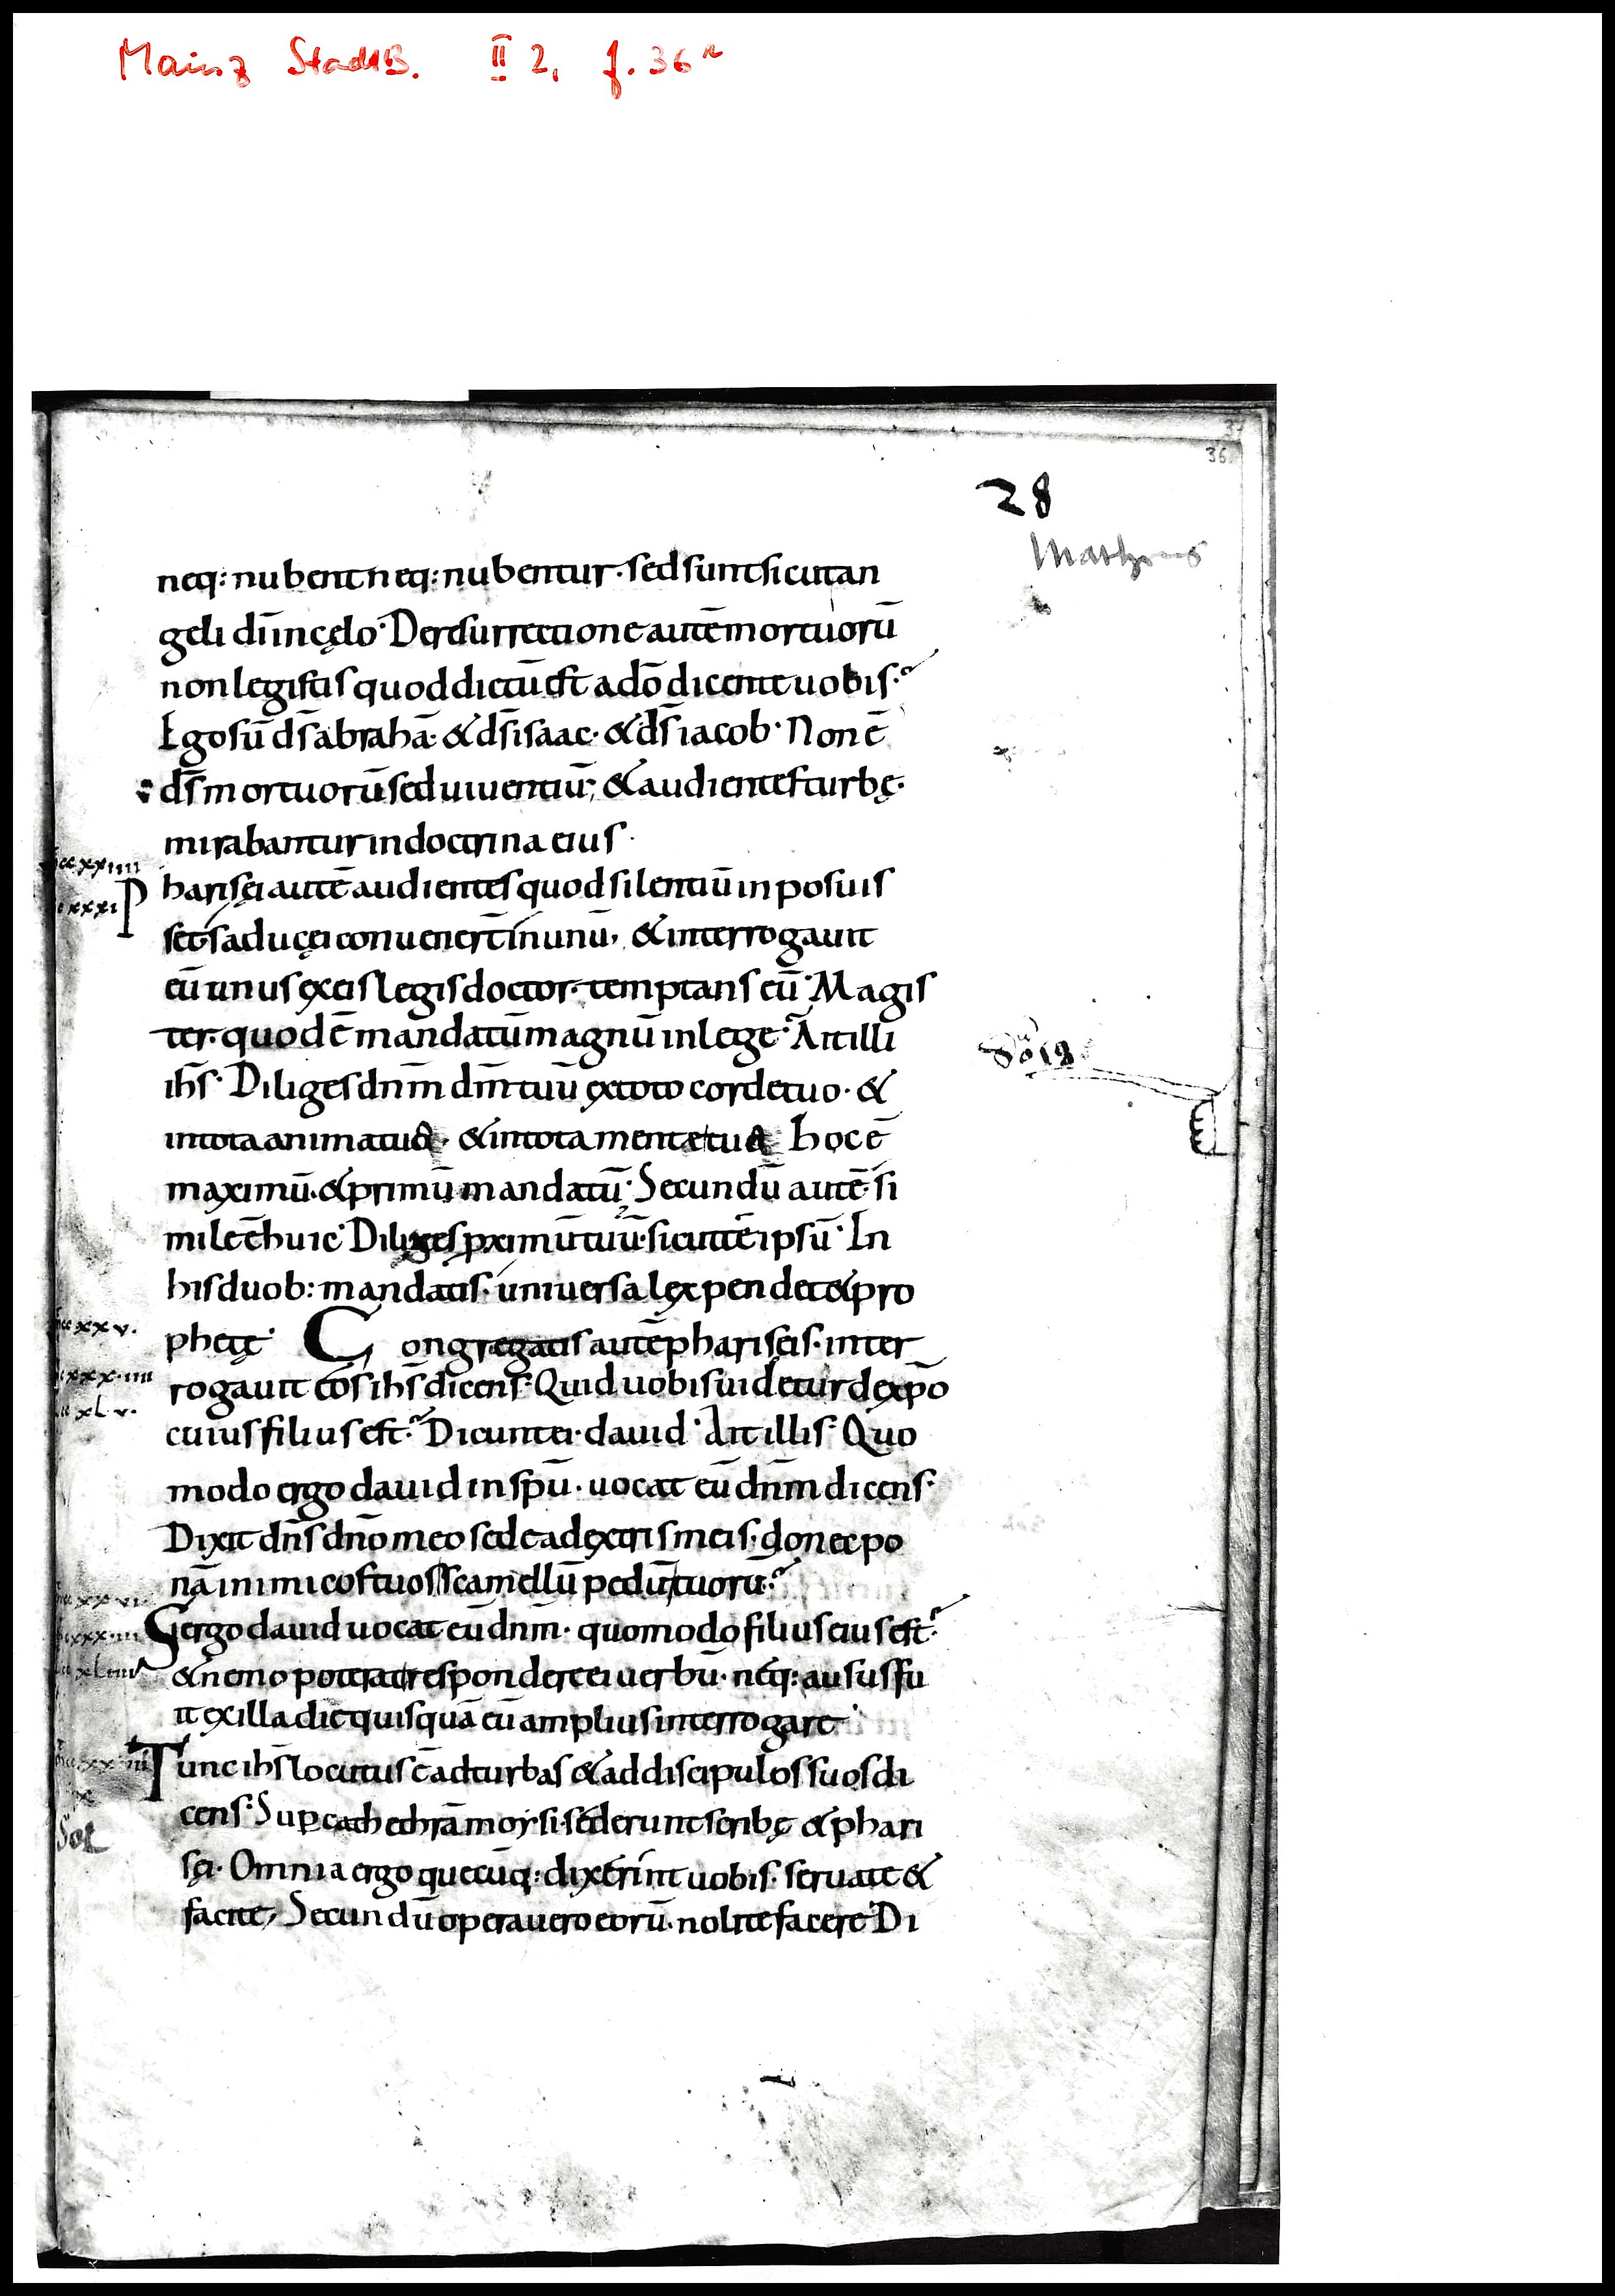 Mainz StadtB. II 2, f. 36r
37
36
28
Matheus
neq: nubent neq: nubentur · sed sunt sicut an
geli dī in cęlo · De resurrectione autē mortuorū
non legistis quod dictū est a dō dicente uobis ·
Ego sū ds̄ abrahā · & ds̄ isaac · & ds̄ iacob · Non ē
ds̄ mortuorū sed uiuentiū ; & audientes turbę ·
mirabantur in doctrina eius ·
ccxxiiii
cxxxi
Pharisęi autē audientes quod silentiū inposuis
set saducęi conuenert̄ in unū , & interrogauit
eū unus ex eis legis doctor · temptans eū · Magis
ter · quod ē mandatū magnū in lege · Ait illi
ihs̄ · Diliges dnm̄ dm̄ tuū ex toto corde tuo · &
in tota anima tua · & in tota mente tua hoc ē
maximū · & primū mandatū · Secundū autē · si
mile ē huic · Diliges pximū tuū · sicut te ipsū · In
his duob: mandatis · uniuersa lex pendet & pro
ccxxv ·
phetę · Congregatis autē phariseis · inter
xxx · iiii
rogauit eos ihs̄ dicens · Quid uobis uidetur de xp̄o
xl · v ·
cuius filius est · Dicunt ei · dauid · Ait illis · Quo
modo ergo dauid in spū · uocat eū dnm̄ dicens ·
Dixit dns̄ dnō meo sede a dextris meis · donec po
nā inimicos tuos scamellū pedū tuorū ·
Si ergo dauid uocat eū dnm̄ · quomodo filius eius est ·
& nemo poterat respondere ei uerbū · neq: ausus fu
it ex illa die quisquā eū amplius interrogare ·
Tunc ihs̄ locutus ē ad turbas & ad discipulos suos di
cens · Sup cathedrā moysi · sederunt scribę & phari
sęi · Omnia ergo quecūq: dixerint uobis · seruate &
facite , Secundū opera uero eorū · nolite facere · Di